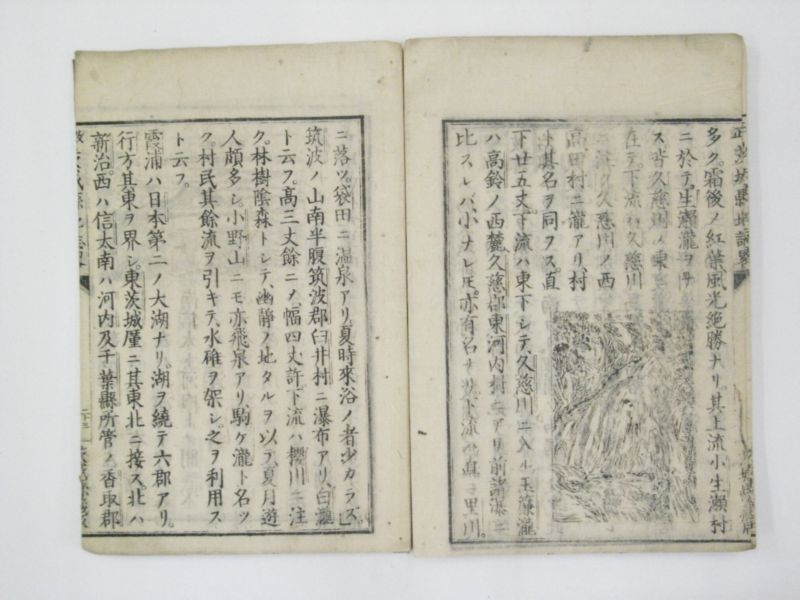 多ク。霜後ノ紅葉風光絶勝ナリ。其上流小生瀬村
ニ於テ。生瀬瀧ヲナ
ス。皆久慈川ノ東
在テ。下流ハ久慈川
久慈川ノ西
高田村ニ瀧アリ。村
ト其名ヲ同フス。直
下廿五丈下流ハ東下シテ久慈川ニ入ル。玉簾瀧
ハ高鈴ノ西麓久慈郡東河内村ニアリ。前諸瀑ニ
比スレバ小ナレ𪜈。亦有名ナリ。下流ハ里川。
ニ落ツ。袋田ニ温泉アリ。夏時來浴ノ者少カラズ。
筑波ノ山南半腹筑波郡臼井村ニ瀑布アリ。白瀧
ト云フ。高三丈餘ニノ。幅四丈許下流ハ櫻川ニ注
ク。林樹陰森トシテ。幽靜ノ地タルヲ以テ。夏月遊
人頗多シ。小野山ニモ亦飛泉アリ駒ケ瀧ト名ツ
ク。村民其餘流ヲ引キテ。水碓ヲ架シ。之ヲ利用ス
ト云フ。
霞浦ハ日本第二ノ大湖ナリ。湖ヲ繞テ六郡アリ。
行方其東ヲ界シ。東茨城厪ニ其東北ニ接ス。北ハ
新治。西ハ信太南ハ河内及千葉縣所管ノ香取郡